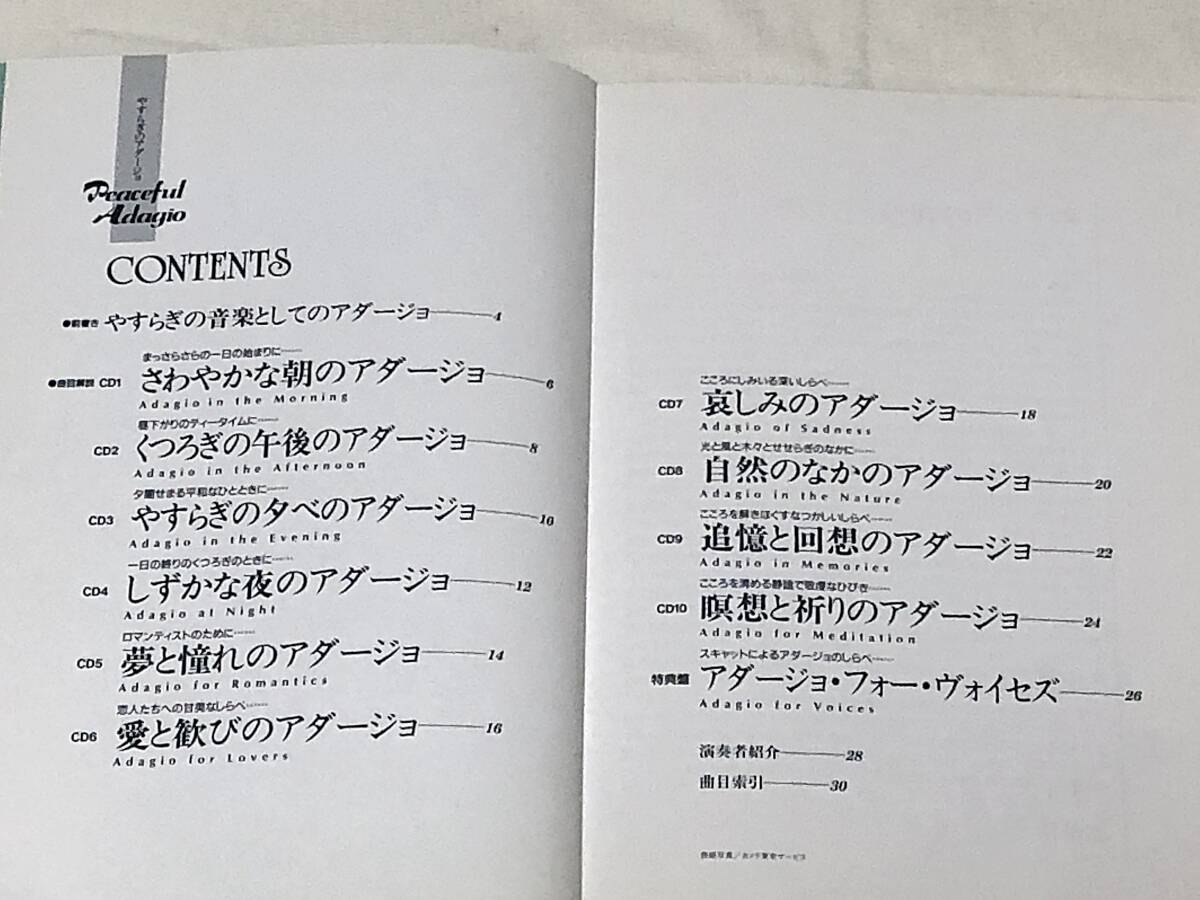 やすらぎのアダージョ
Peaceful
Adagio
CONTENTS
●前書き やすらぎの音楽としてのアダージョ 4
まっさらさらの一日の始まりに……
●曲目解説 CD1 さわやかな朝のアダージョ 6
Adagio in the Morning
昼下がりのティータイムに……
CD2 くつろぎの午後のアダージョ 8
Adagio in the Afternoon
夕闇せまる平和なひとときに……
CD3 やすらぎの夕べのアダージョ 10
Adagio in the Evening
一日の終りのくつろぎのときに……
CD4 しずかな夜のアダージョ 12
Adagio at Night
ロマンティストのために……
CD5 夢と憧れのアダージョ 14
Adagio for Romantics
恋人たちへの甘美なしらべ……
CD6 愛と歓びのアダージョ 16
Adagio for Lovers
こころにしみいる深いしらべ……
CD7 哀しみのアダージョ 18
Adagio of Sadness
光と風と木々とせせらぎのなかに……
CD8 自然のなかのアダージョ 20
Adagio in the Nature
こころを解きほぐすなつかしいしらべ……
CD9 追憶と回想のアダージョ 22
Adagio in Memories
こころを清める静謐で敬虔なひびき……
CD10 瞑想と祈りのアダージョ 24
Adagio for Meditation
スキャットによるアダージョのしらべ……
特典盤 アダージョ・フォー・ヴォイセズ 26
Adagio for Voices
演奏者紹介 28
曲目索引 30
表紙写真／カメラ東京サービス